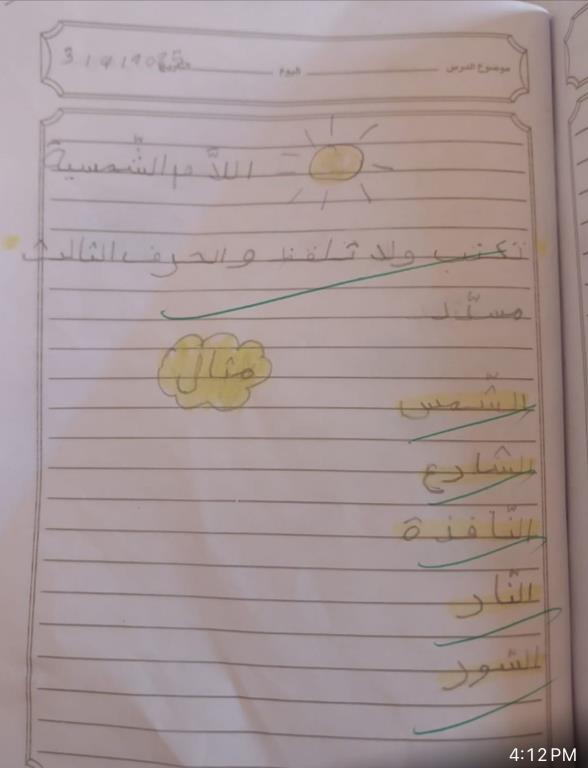 موضوع الدرس اليوم التاريخ 3 / 9 / 2025
اللاّم الشّمسية
تكتب ولا تلفظ والحرف الثالث
مشدّد
مثال
الشّمس
الشارع
النّافذة
النار
الثور
4:12 PM